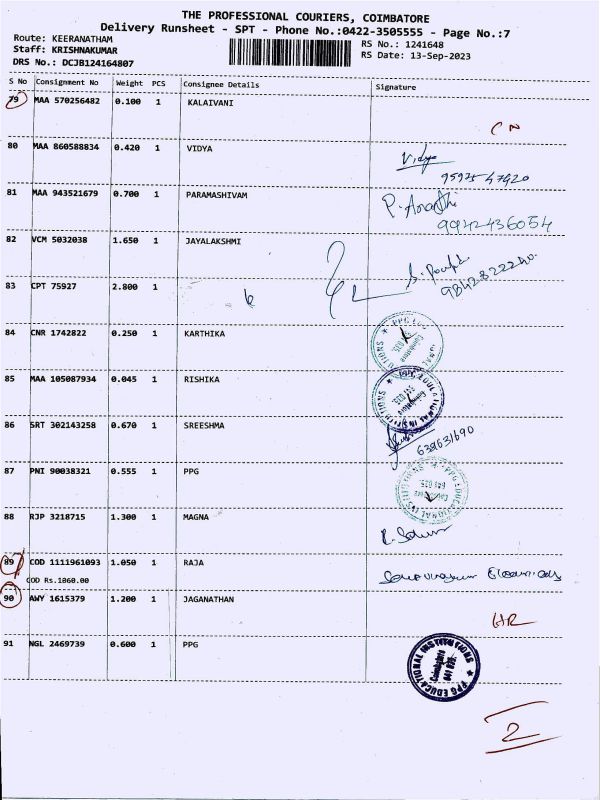 THE PROFESSIONAL COURIERS, COIMBATORE
Delivery Runsheet - SPT - Phone No.:0422-3505555 - Page No.:7
Route: KEERANATHAM
RS No.: 1241648
Staff: KRISHNAKUMAR
RS Date: 13-Sep-2023
DRS No.: DCJB124164807
S No Consignment No Weight PCS Consignee Details Signature
79 MAA 570256482 0.100 1 KALAIVANI
CN
80 MAA 860588834 0.420 1 VIDYA
Vidya
95925 47420
81 MAA 943521679 0.700 1 PARAMASHIVAM
9942436054
82 VCM 5032038 1.650 1 JAYALAKSHMI
9842822240
83 CPT 75927 2.800 1
84 CNR 1742822 0.250 1 KARTHIKA
PPG EDUCATIONAL INSTITUTIONS
Coimbatore
641 035.
85 MAA 105087934 0.045 1 RISHIKA
PPG EDUCATIONAL INSTITUTIONS
Coimbatore
641 035.
86 SRT 302143258 0.670 1 SREESHMA
87 PNI 90038321 0.555 1 PPG
PPG EDUCATIONAL INSTITUTIONS
Coimbatore
641 035.
88 RJP 3218715 1.300 1 MAGNA
89 COD 1111961093 1.050 1 RAJA
COD Rs.1060.00
90 AWY 1615379 1.200 1 JAGANATHAN
HR
91 NGL 2469739 0.600 1 PPG
PPG EDUCATIONAL INSTITUTIONS
Coimbatore
641 035.
2